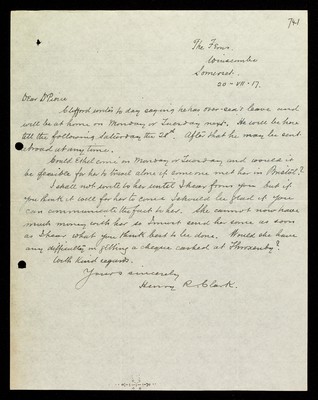 741
The Firs.
Somerset.
20-VII-17.
Dear Dr Pierce
Clifford writes to day saying he has over-sea's leave and
will be at home on Monday or Tuesday next. He will be here
till the following Saturday the 28th. After that he may be sent
abroad at any time.
Could Ethel come on Monday or Tuesday and would it
be feasible for her to travel alone if someone met her in Bristol?
I shall not write to her until I hear from you but if
you think it well for her to come I should be glad if you
can communicate the fact to her. She cannot now have
much money with her so I must send her some as soon
as I hear what you think best to be done. Would she have
any difficulty in getting a cheque cashed at
With kind regards.
Yours sincerely
Henry R. Clark.